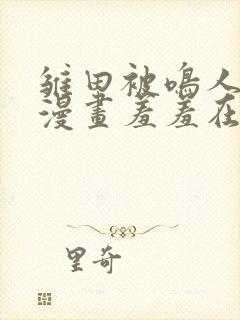 雏田被鳴人
漫畫羞羞在
里奇